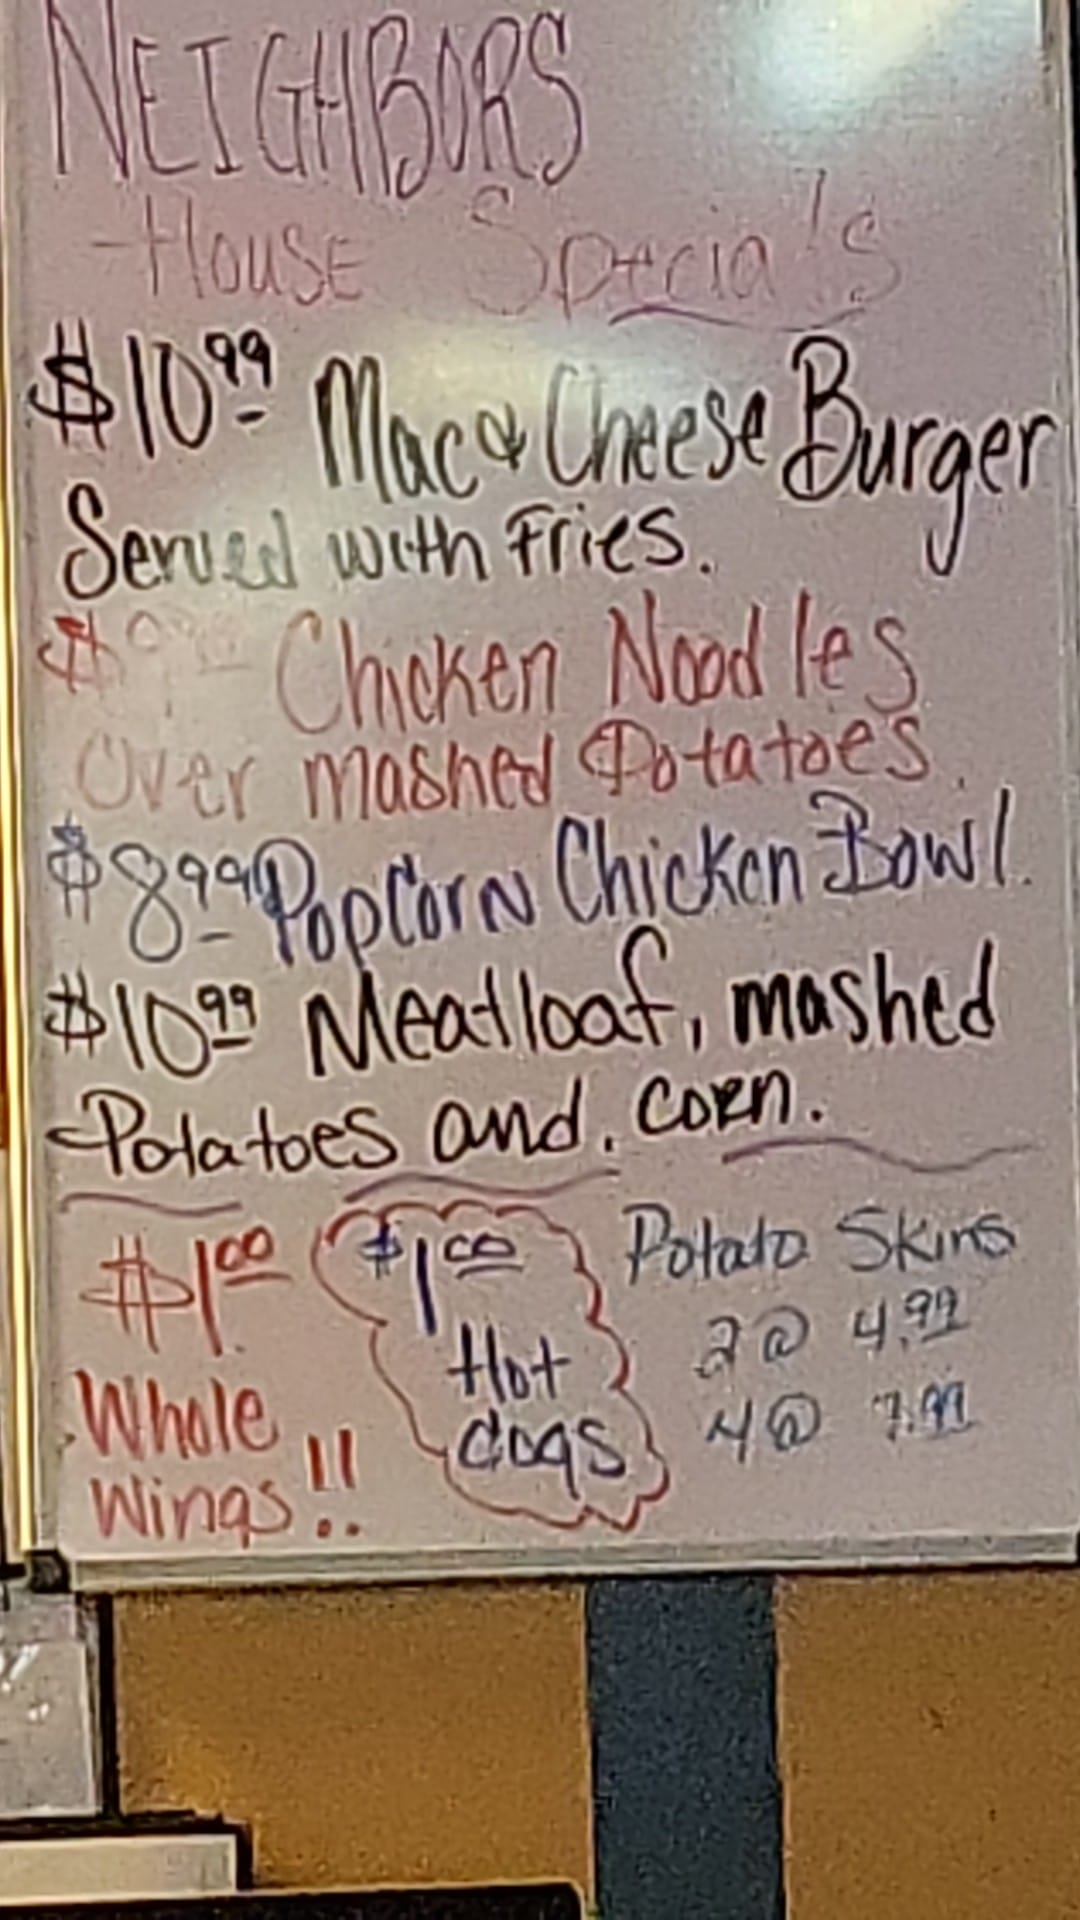 NEIGHBORS
House Specials
$10.99 Mac & Cheese Burger
Served with Fries.
Chicken Noodles
Over mashed Potatoes.
$8.99 PopCorn Chicken Bowl.
$10.99 Meatloaf, mashed
Potatoes and. corn.
$1.00
Whole
Wings!!
$1.00
Hot
dogs
Potato Skins
2 @ 4.99
4 @ 7.99